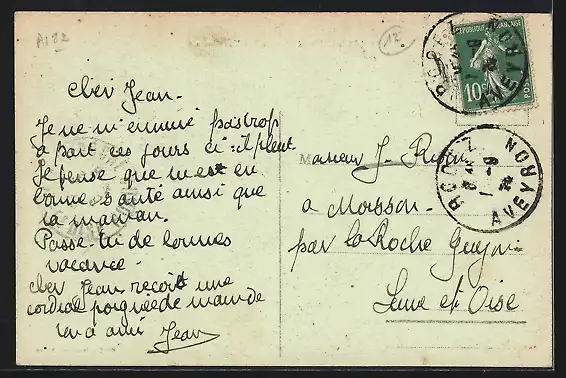 A182
12
Cher Jean.
Je ne m'ennuie pas trop
à part ces jours ci: il pleut
Je pense que tu est en
bonne santé ainsi que
ta maman.
Passe-tu de bonnes
vacance.
cher Jean reçoit une
cordial poignée de main de
ton ami Jean
Monsieur J.
à Moisson.
par la Roche Guyon
Seine et Oise
REPUBLIQUE FRANÇAISE
10
POSTES
RODEZ
AVEYRON
RODEZ
AVEYRON